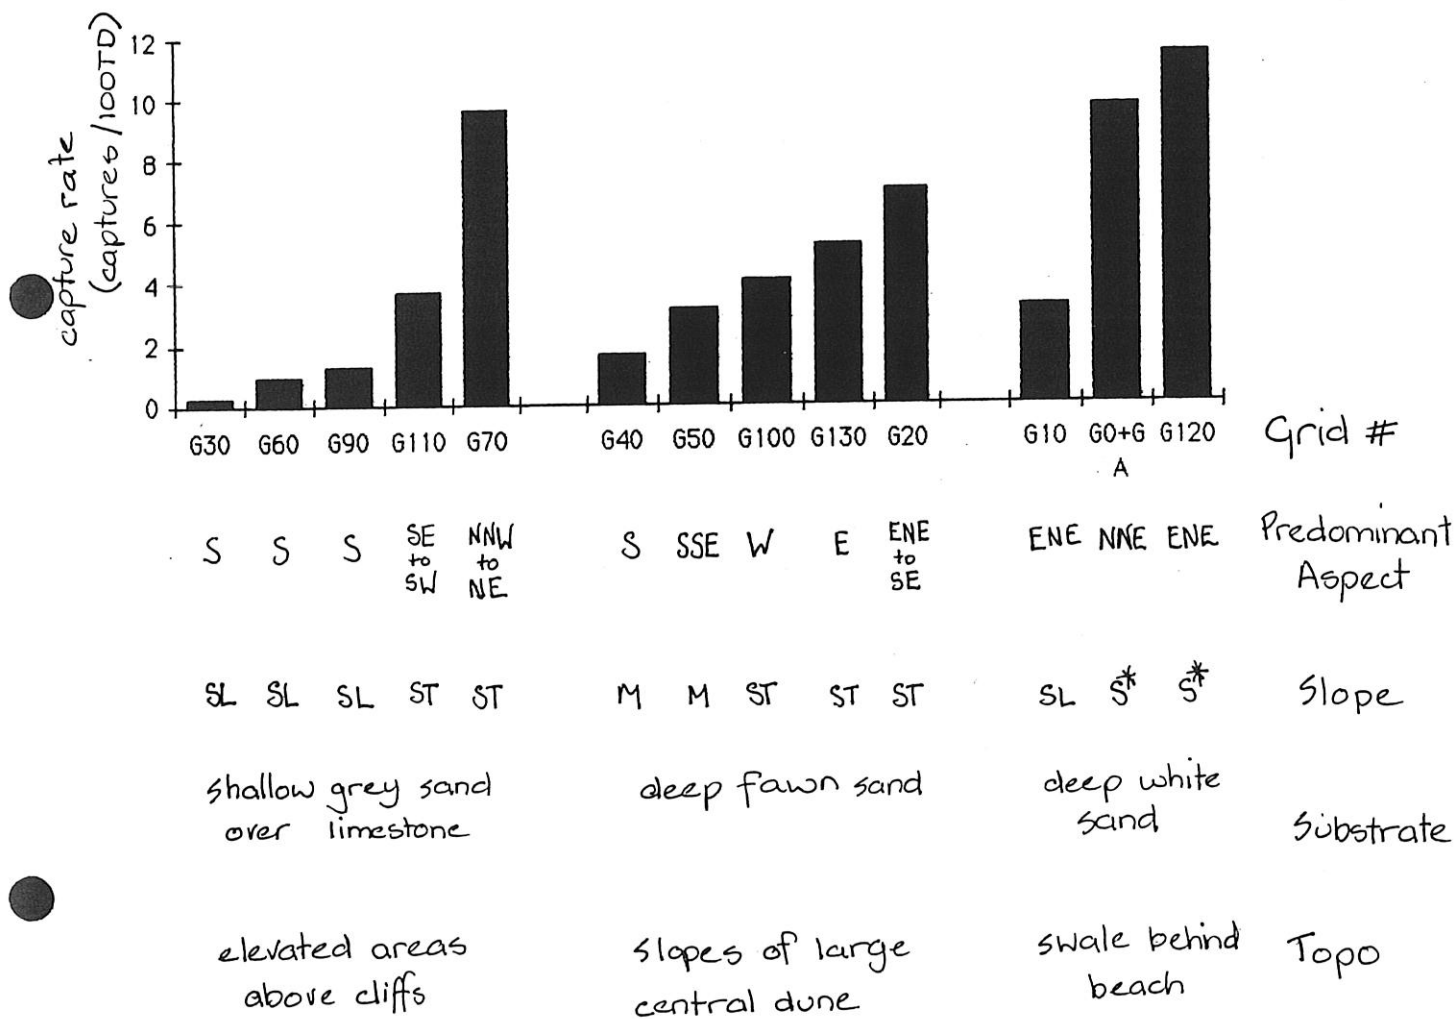 capture rate
(captures/100TD)
12
10
8
6
4
2
0
G30 G60 G90 G110 G70 G40 G50 G100 G130 G20 G10 G0+G G120 Grid #
A
S S S SE to SW NNW to NE S SSE W E ENE to SE ENE NNE ENE Predominant Aspect
SL SL SL ST ST M M ST ST ST SL S* S* Slope
shallow grey sand
over limestone
deep fawn sand
deep white
sand
Substrate
elevated areas
above cliffs
slopes of large
central dune
swale behind
beach
Topo